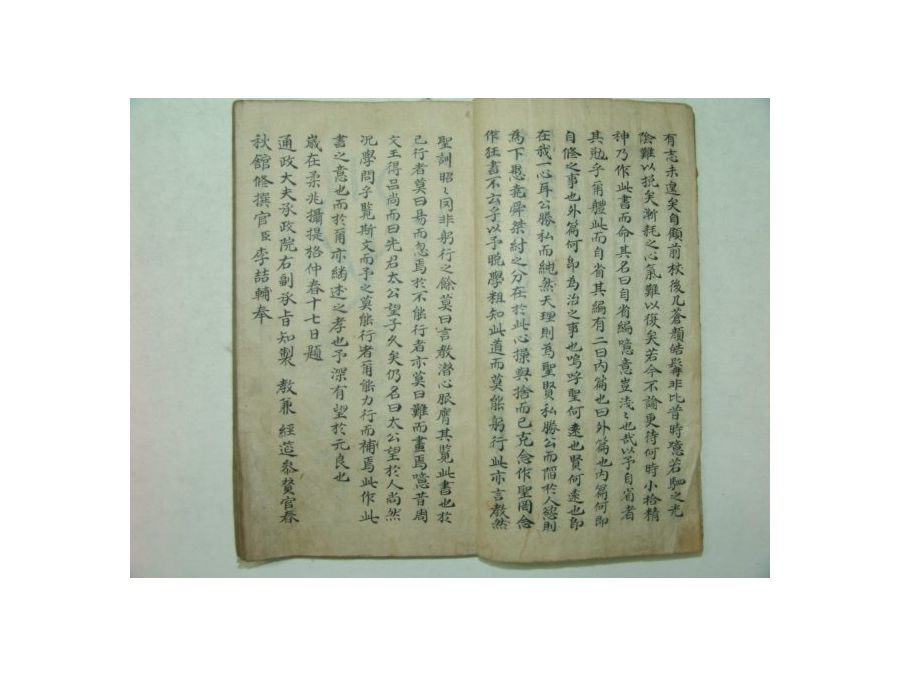 有志未遑矣自顧前杖後几蒼顔皓髮非比昔時噫若駟之光
陰難以挽矣漸耗之心氣難以復矣若今不諭更待何時小拾精
神乃作此書而命其名曰自省編噫意豈淺〻也哉以予自省者
其勉乎爾體此而自省其編有二曰内篇也曰外篇也内篇何即
自修之事也外篇何即為治之事也嗚呼聖何遠也賢何遠也即
在我一心耳公勝私而純然天理則為聖賢私勝公而陷於人慾則
為下愚堯舜桀紂之分在於此心操與捨而已克念作聖罔念
作狂書不云乎以予晚學粗知此道而莫能躬行此亦言教然
聖訓昭〻同非躬行之餘莫曰言教潛心服膺其覧此書也於
已行者莫曰易而忽焉於不能行者亦莫曰難而畫焉噫昔周
文王得呂尚而曰先君太公望子久矣仍名曰太公望於人尚然
况學問乎覧斯文而予之莫能行者爾能力行而補焉此作此
書之意也而於爾亦繼述之孝也予深有望於元良也
歲在柔兆攝提格仲春十七日題
通政大夫承政院右副承旨知製 教兼 經筵參贊官春
秋館修撰官臣李喆輔奉